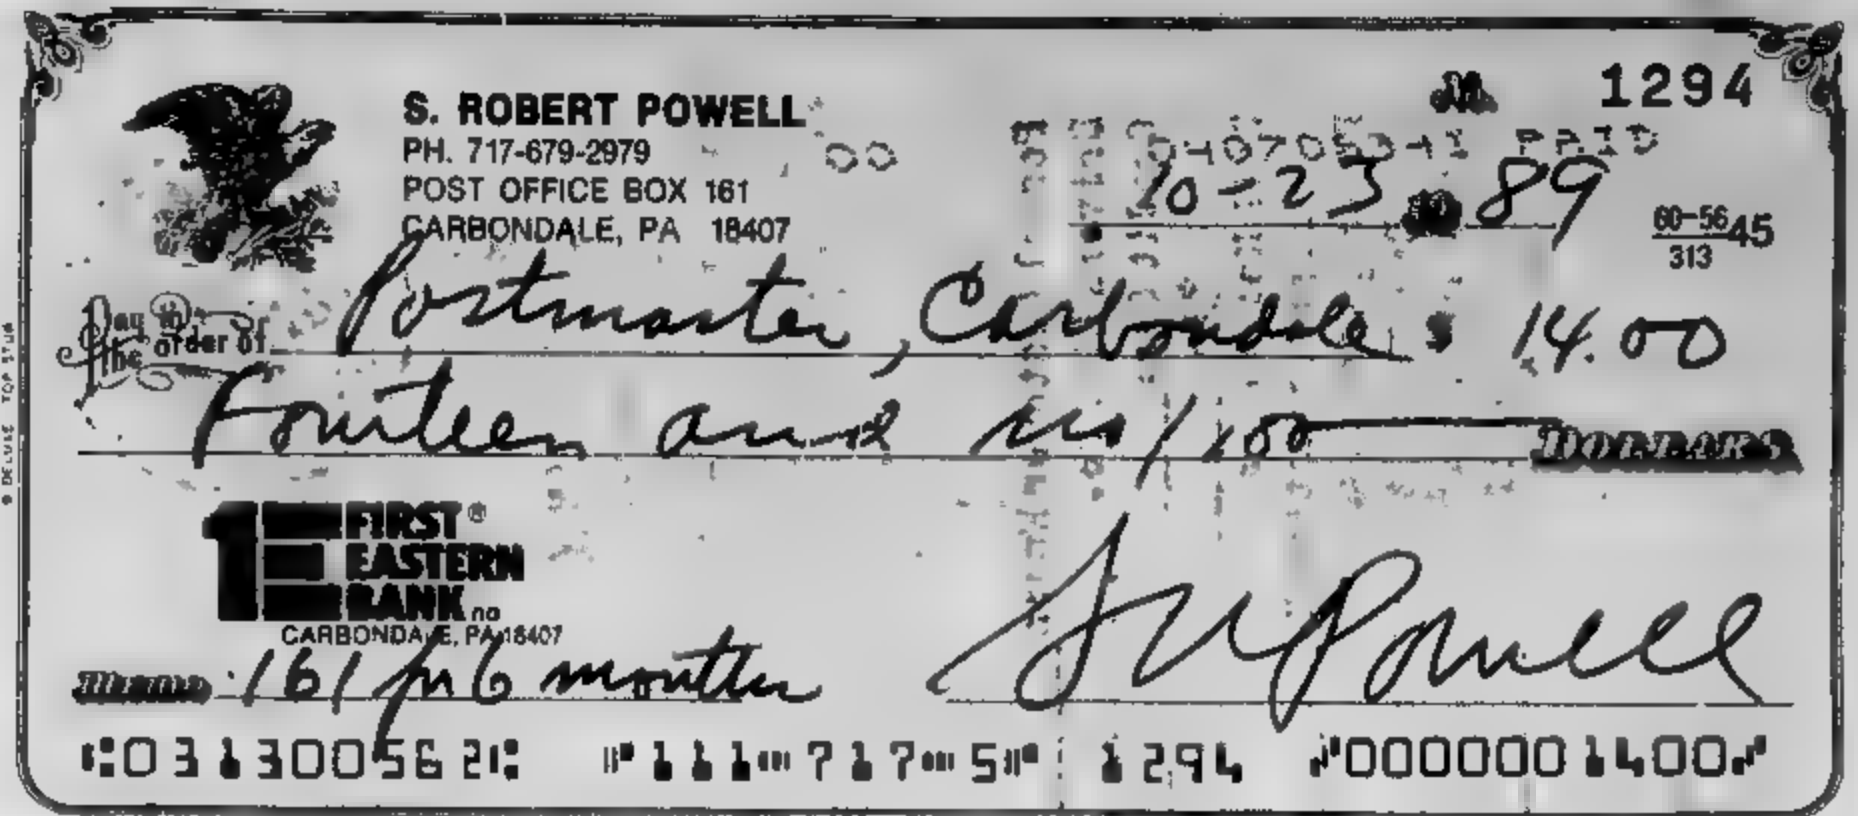 1294
S. ROBERT POWELL
PH. 717-679-2979
POST OFFICE BOX 161
CARBONDALE, PA 18407
00
PAID
10-23 89
60-5645
313
Pay to the order of Postmaster, Carbondale $ 14.00
Fourteen and no/100 DOLLARS
FIRST®
EASTERN
BANK na
CARBONDALE, PA 18407
Memo 161 for 6 months
S R Powell
⑆031300562⑆ ⑈111⑉717⑉5⑈ 1294 ⑈0000001400⑈
© DELUXE TOP STUB